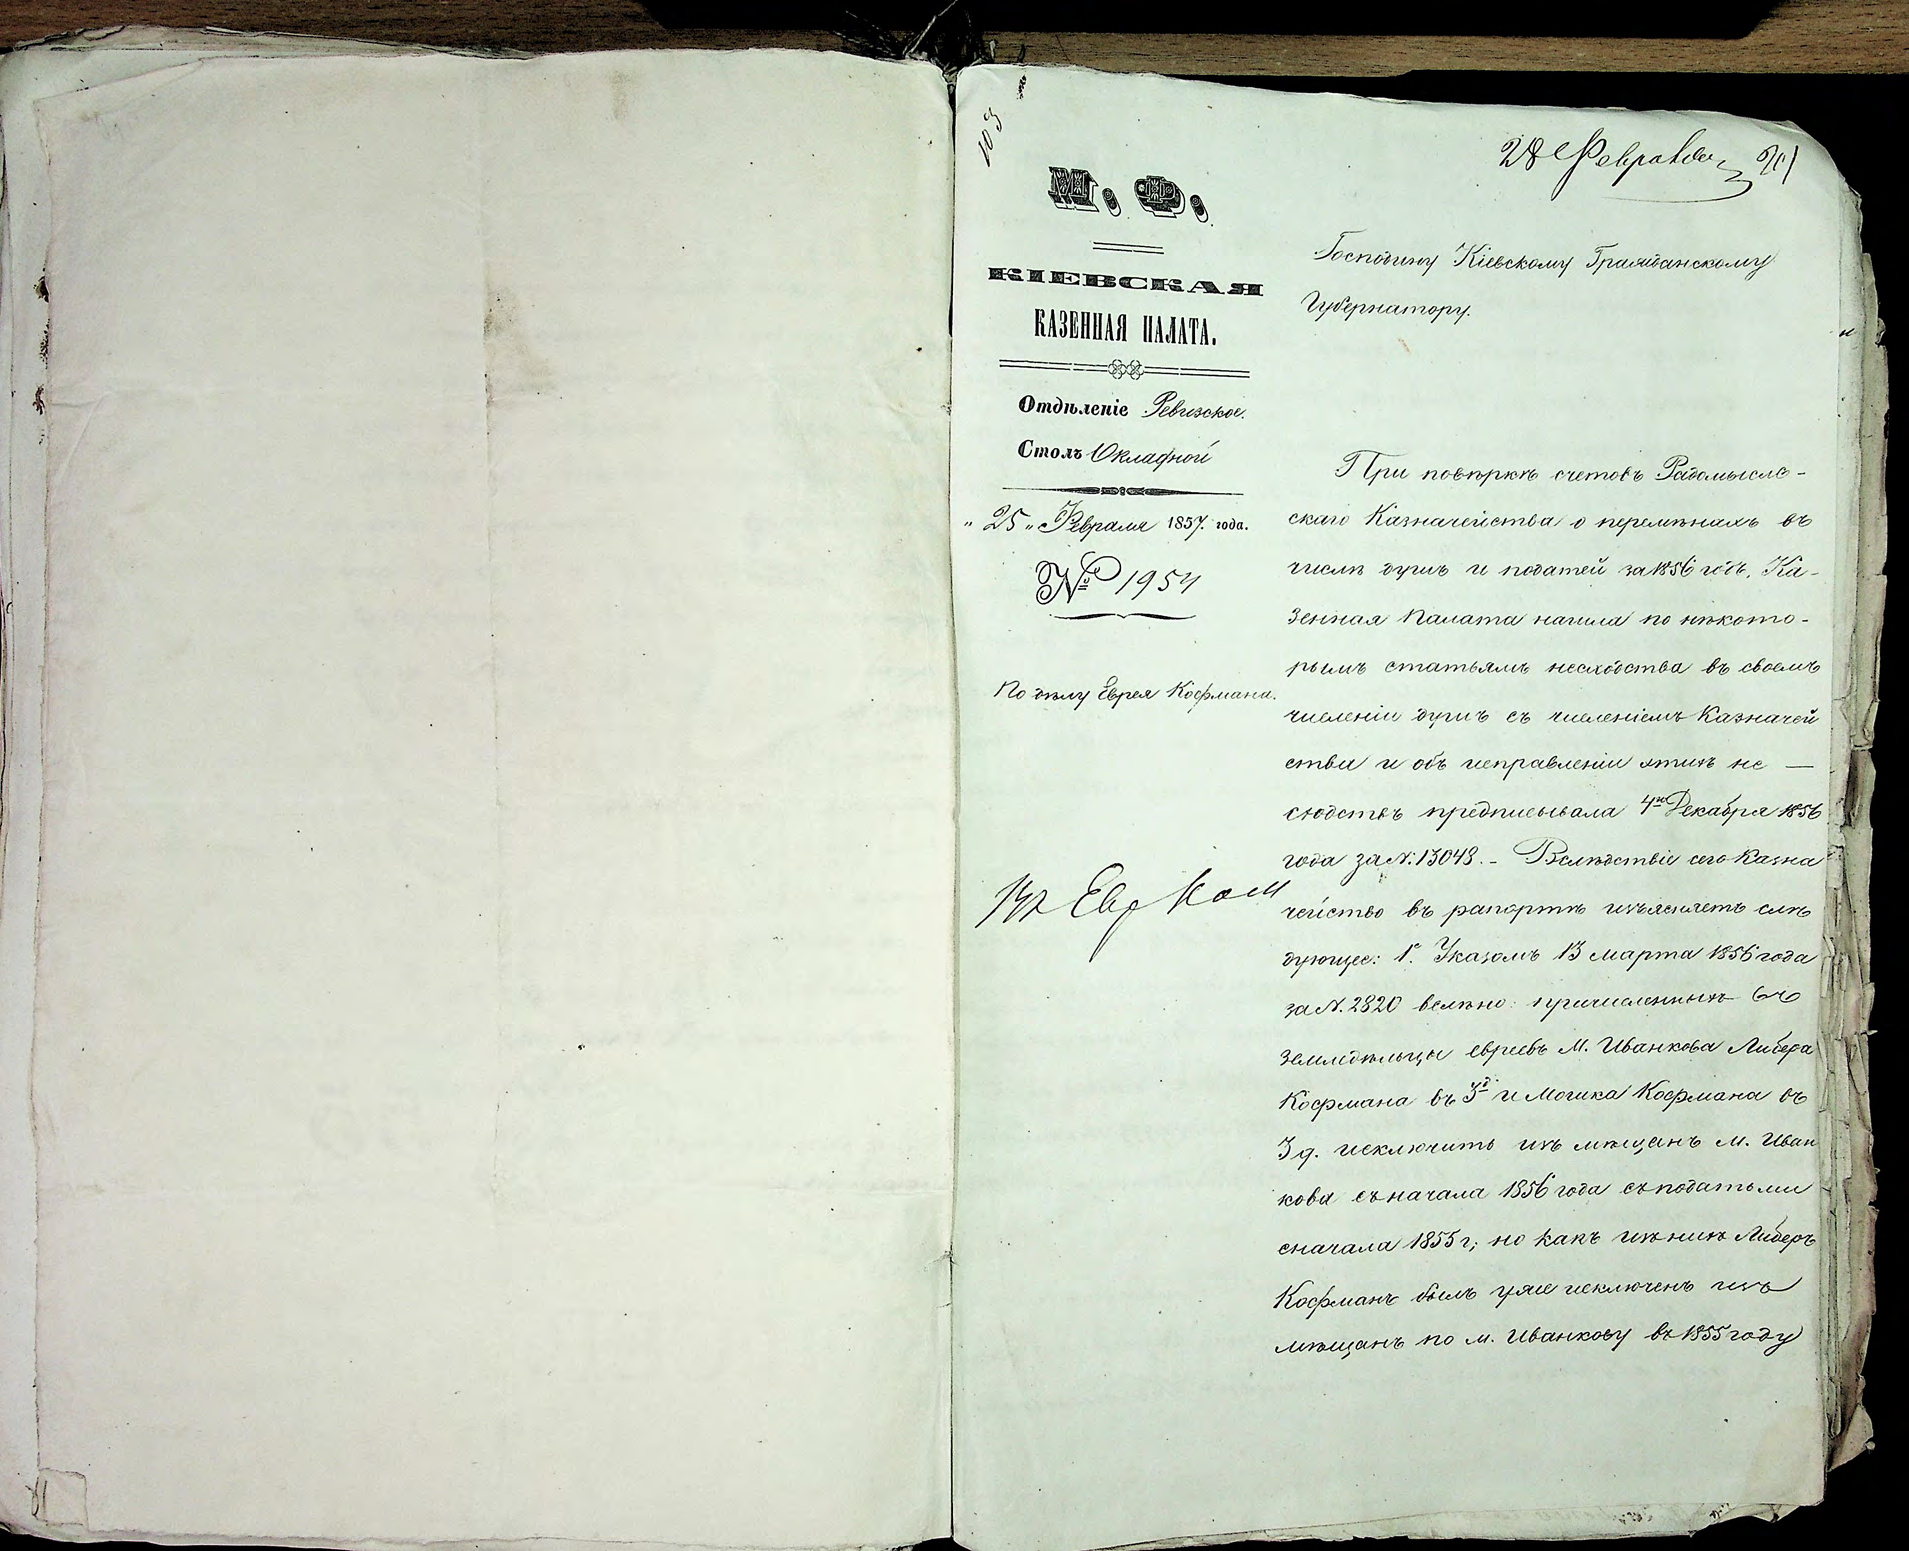 103
28 Февраля
М. Ф.
КІЕВСКАЯ
КАЗЕННАЯ ПАЛАТА.
Отдѣленіе Ревизское.
Столъ Окладной
„ 25 „ Февраля 1857. года.
№ 1954
По дѣлу Еврея Кофмана.
Господину Кіевскому Гражданскому
Губернатору.
При повѣркѣ счетовъ Радомысль-
скаго Казначейства о перемѣнахъ въ
числѣ душъ и податей за 1856 годъ, Ка-
зенная Палата нашла по нѣкото-
рымъ статьямъ несходства въ своемъ
численіи душъ съ численіемъ Казначей
ства и объ исправленіи этихъ не —
сходствъ предписывала 4го Декабря 1856
года за N. 13048. – Вслѣдствіе сего Казна
чейство въ рапортѣ изъясняетъ слѣ
дующее: 1е. Указомъ 13 марта 1856 года
за N. 2820 велѣно причисленныхъ въ
земледѣльцы евреевъ М. Иванкова Либера
Кофмана въ и Мошка Кофмана въ
3 д. исключить изъ мѣщанъ м. Иван
кова съ начала 1856 года съ податьми
сначала 1855 г; но какъ изъ нихъ Либеръ
Кофманъ былъ уже исключенъ изъ
мѣщанъ по м. Иванкову въ 1855 году